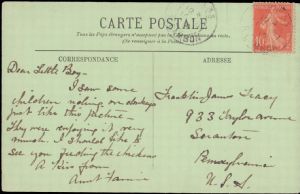 CARTE POSTALE
Tous les Pays étrangers n'acceptent pas la Correspondance au recto.
(Se renseigner à la Poste)
CORRESPONDANCE
ADRESSE
Dear Little Boy -
I saw some
children riding on donkeys
just like this picture -
They were enjoying it very
much. I should like to
see you feeding the chickens
A kiss from
Aunt Fannie
Franklin James Tracy
933 Taylor avenue
Scranton
Pennsylvania
U.S.A.
10